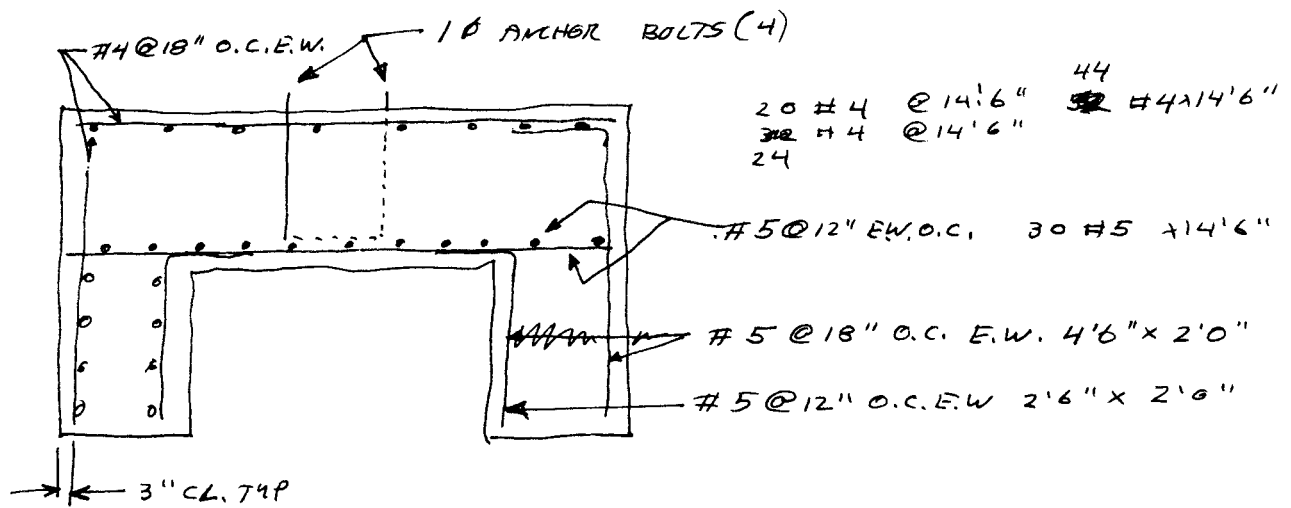 #4 @ 18" O.C.E.W.
1 Ø ANCHOR BOLTS (4)
44
20 #4 @ 14'6" #4 x 14'6"
#4 @ 14'6"
24
#5 @ 12" E.W.O.C. 30 #5 x 14'6"
#5 @ 18" O.C. E.W. 4'6" x 2'0"
#5 @ 12" O.C.E.W 2'6" x 2'0"
3" CL. TYP